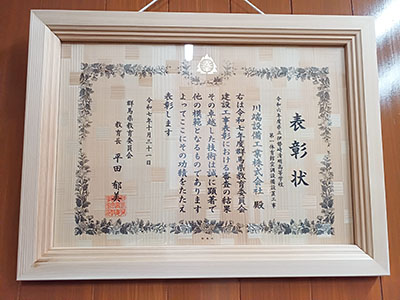 表彰状
令和六年度県立伊勢崎清明高等学校
第一体育館空調設備設置工事
川端設備工業株式会社 殿
右は令和七年度群馬県教育委員会
建設工事表彰における審査の結果
その卓越した技術は誠に顕著で
他の模範となるものであります
よってここにその功績をたたえ
表彰します
令和七年十月三十一日
群馬県教育委員会
教育長 平田 郁美